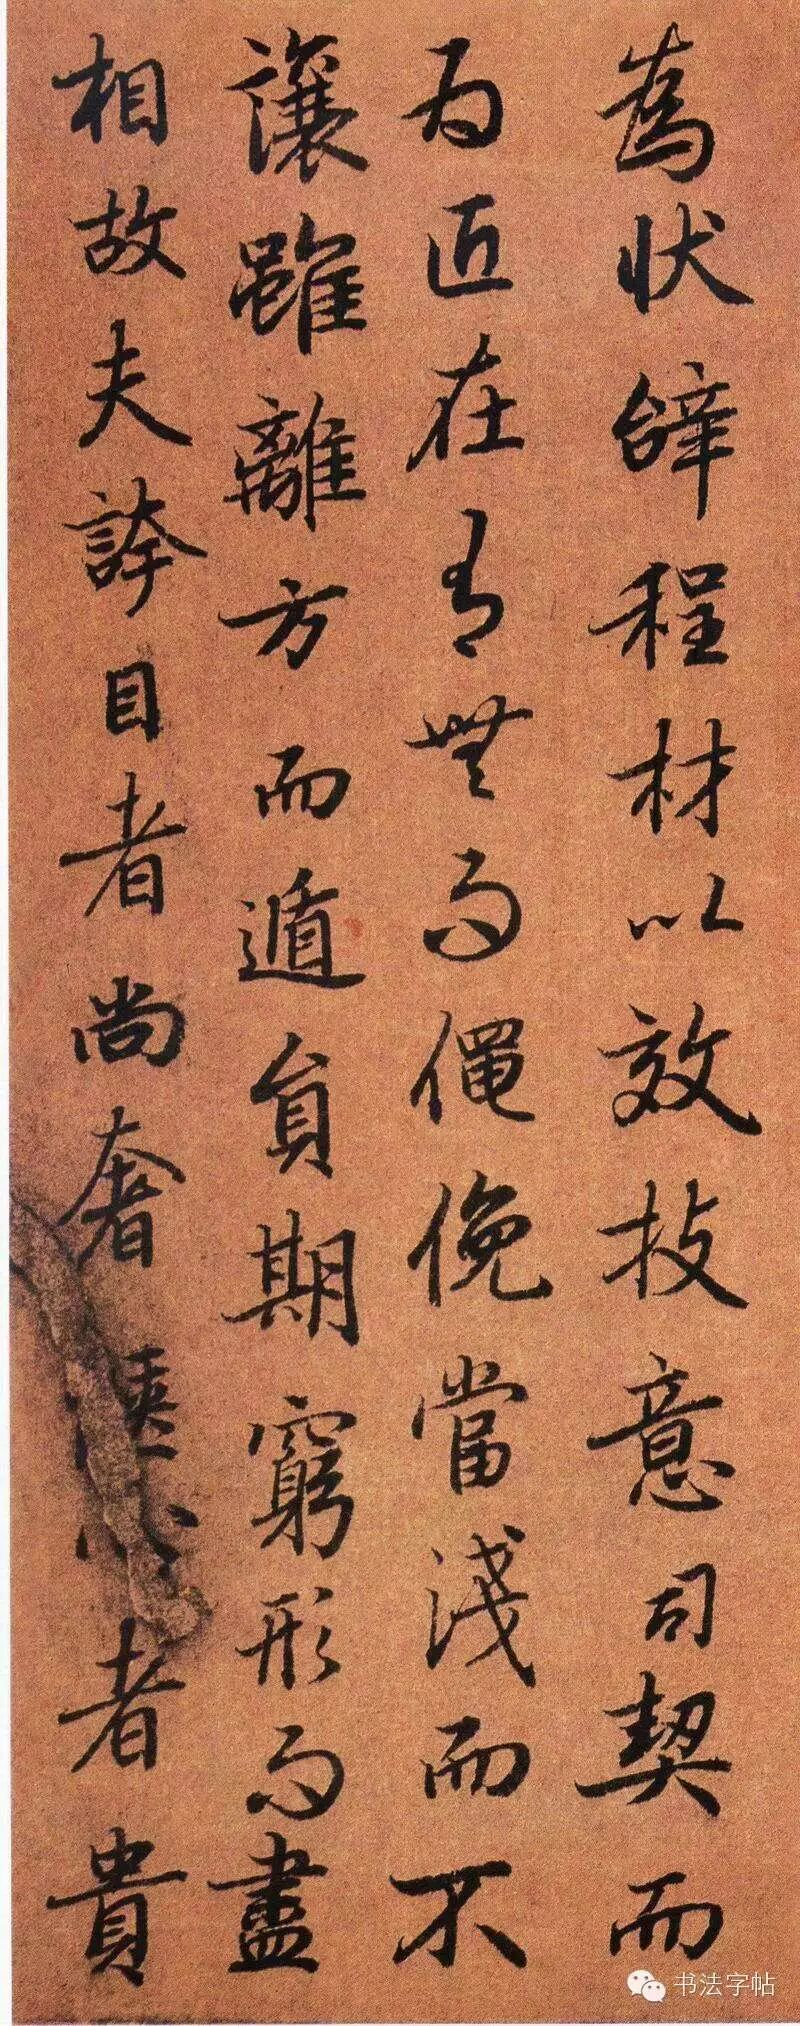 為狀辭程材以效技意司契而
為匠在有無而僶俛當淺而不
讓雖離方而遯員期窮形而盡
相故夫誇目者尚奢愜心者貴
书法字帖